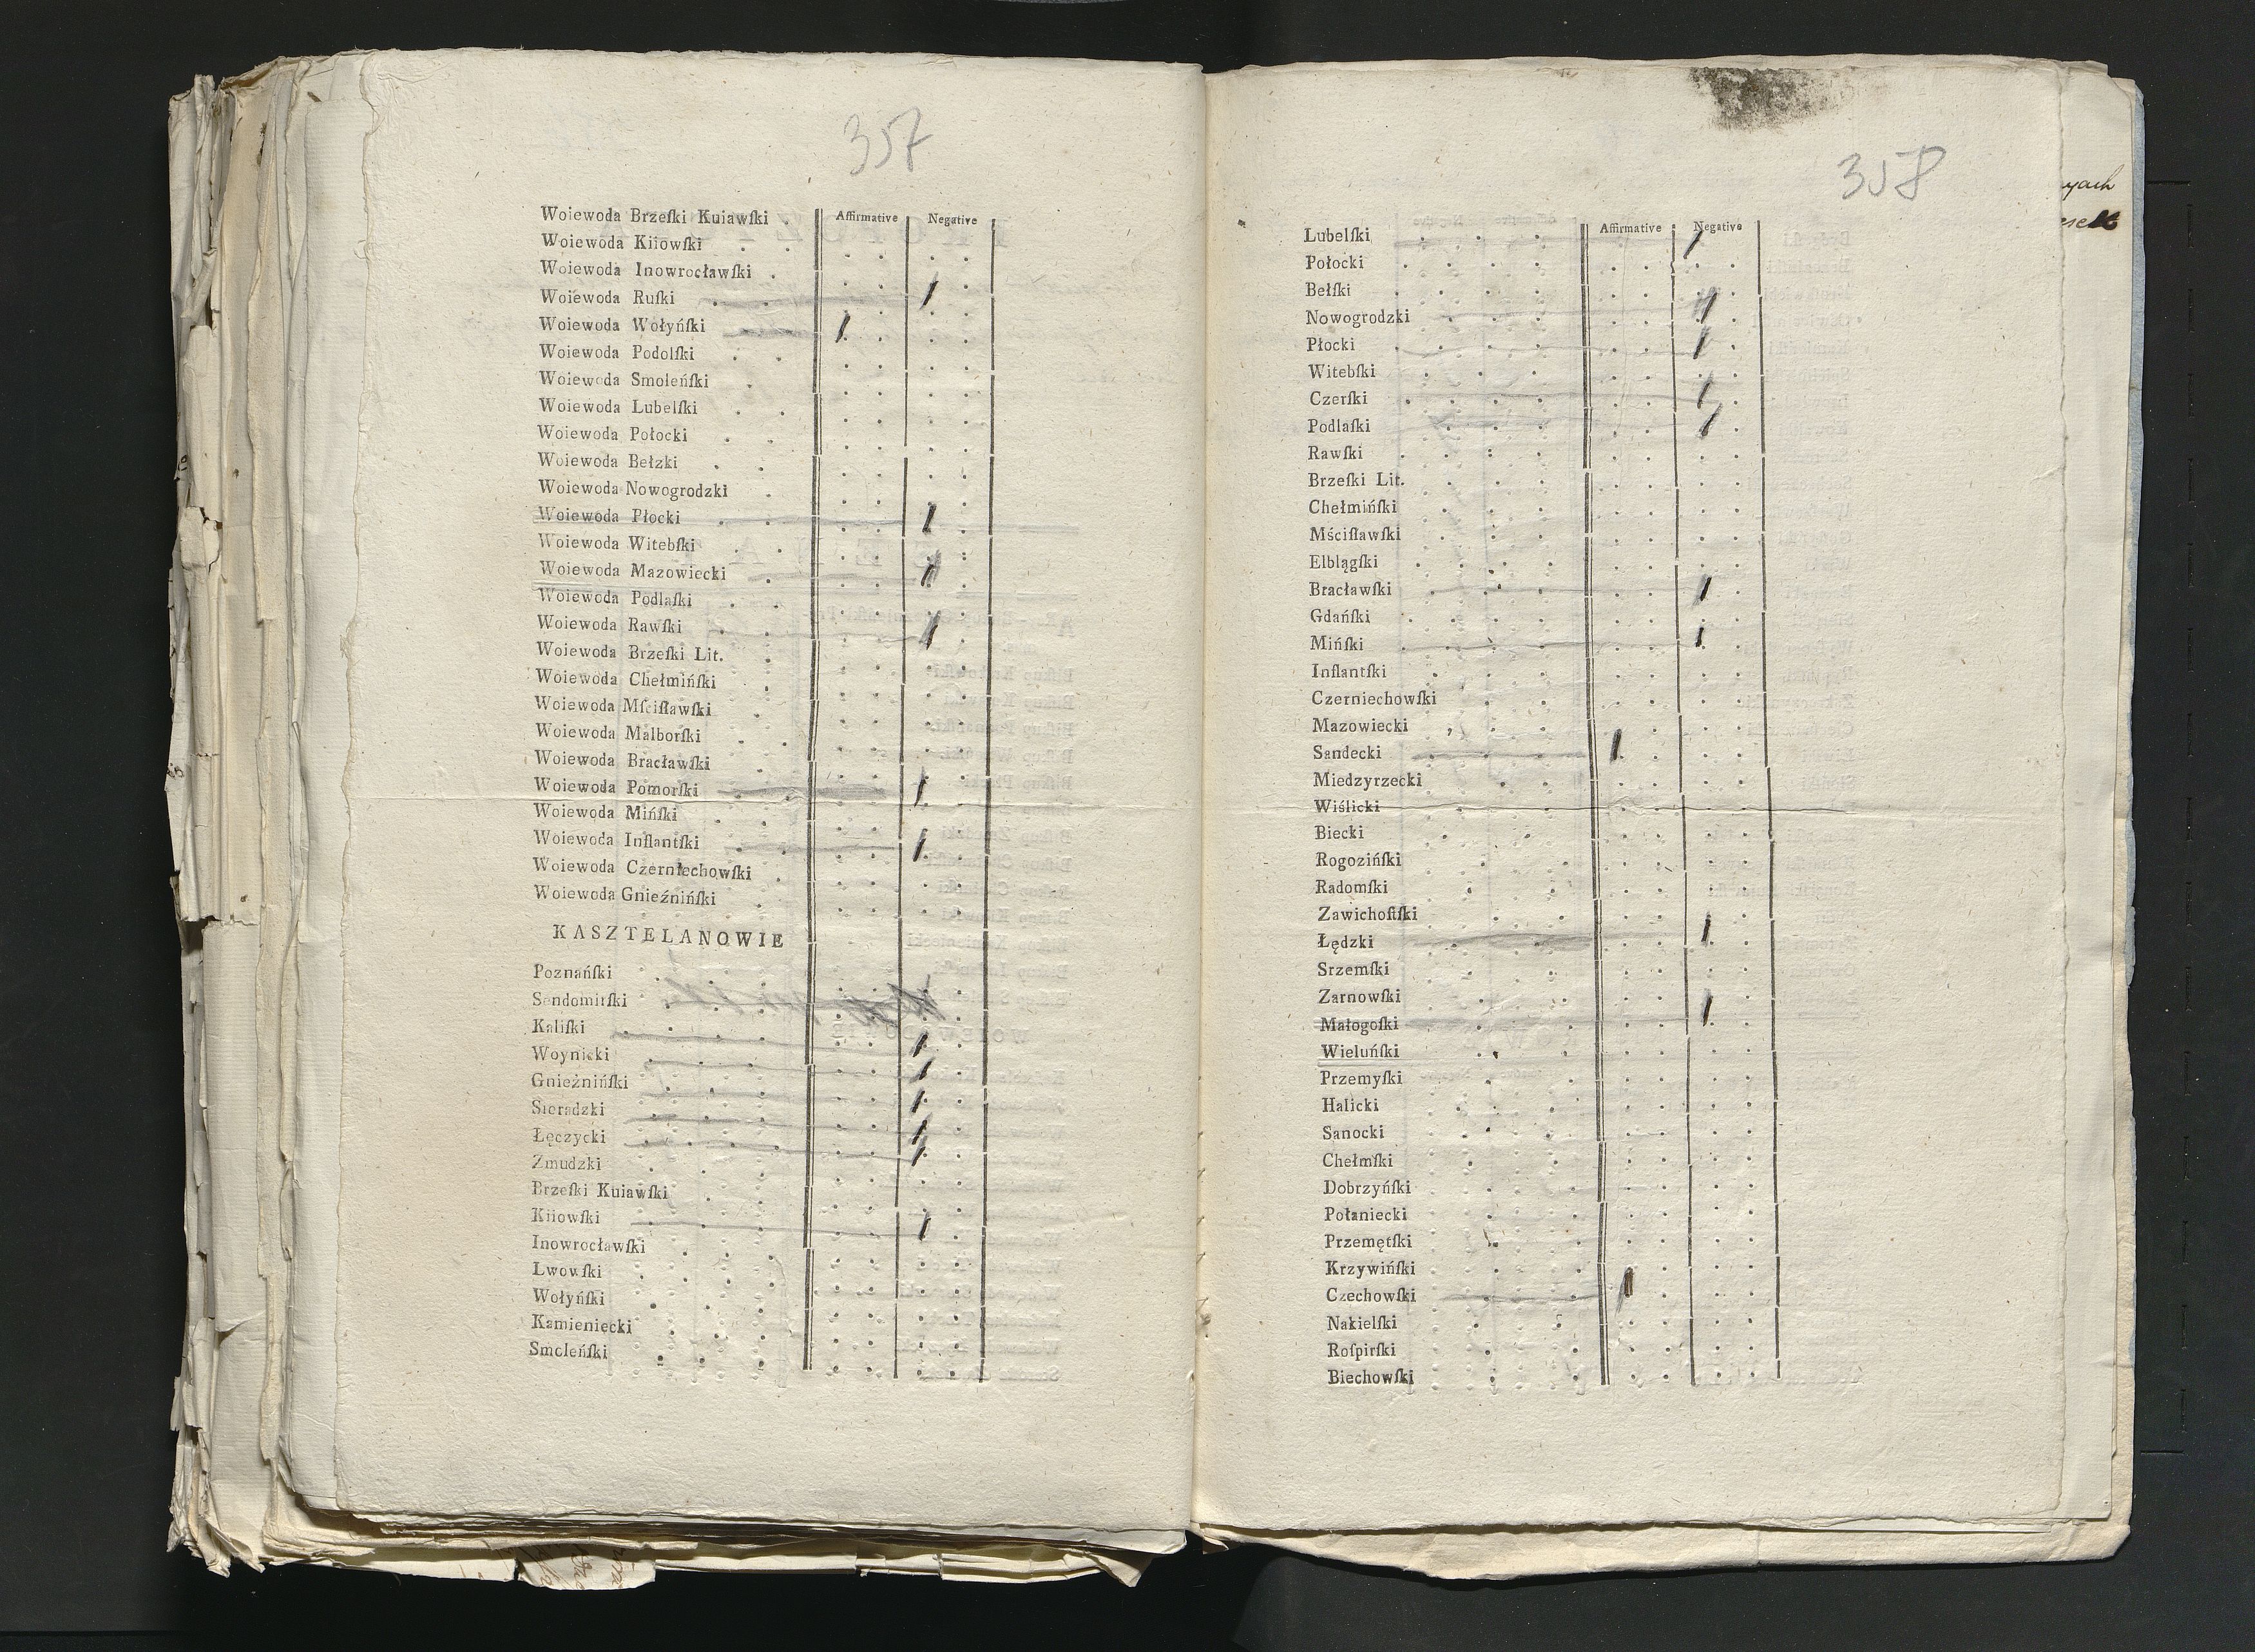 357
Woiewoda Brzeſki Kuiawſki . Affirmative Negative
Woiewoda Kiiowſki
Woiewoda Inowrocławſki
Woiewoda Ruſki
Woiewoda Wołyńſki
Woiewoda Podolſki
Woiewoda Smoleńſki
Woiewoda Lubelſki
Woiewoda Połocki
Woiewoda Bełzki
Woiewoda Nowogrodzki
Woiewoda Płocki
Woiewoda Witebſki
Woiewoda Mazowiecki
Woiewoda Podlaſki
Woiewoda Rawſki
Woiewoda Brzeſki Lit.
Woiewoda Chełmińſki
Woiewoda Mſciſławſki
Woiewoda Malborſki
Woiewoda Bracławſki
Woiewoda Pomorſki
Woiewoda Mińſki
Woiewoda Inflantſki
Woiewoda Czerniechowſki
Woiewoda Gnieźnińſki
KASZTELANOWIE
Poznańſki
Sendomirſki
Kaliſki
Woynicki
Gnieźnińſki
Sieradzki
Łęczycki
Zmudzki
Brzeſki Kuiawſki
Kiiowſki
Inowrocławſki
Lwowſki
Wołyńſki
Kamieniecki
Smoleńſki
358
Affirmative Negative
Lubelſki
Połocki
Bełſki
Nowogrodzki
Płocki
Witebſki
Czerſki
Podlaſki
Rawſki
Brzeſki Lit.
Chełmińſki
Mściſławſki
Elblągſki
Bracławſki
Gdańſki
Mińſki
Inflantſki
Czerniechowſki
Mazowiecki
Sandecki
Miedzyrzecki
Wiślicki
Biecki
Rogozińſki
Radomſki
Zawichoſtſki
Łędzki
Srzemſki
Zarnowſki
Małogoſki
Wieluńſki
Przemyſki
Halicki
Sanocki
Chełmſki
Dobrzyńſki
Połaniecki
Przemętſki
Krzywińſki
Czechowſki
Nakielſki
Roſpirſki
Biechowſki